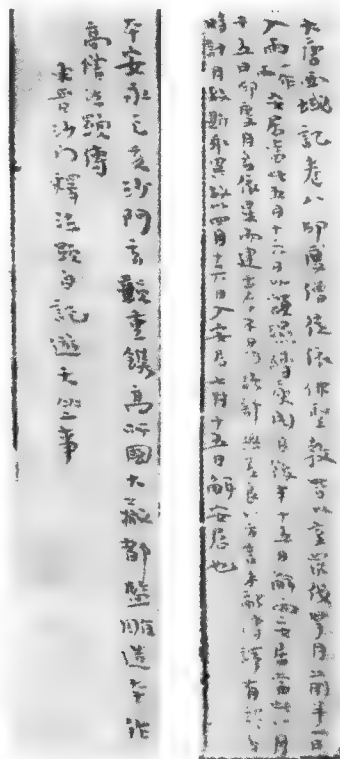 大唐西域記卷八印度僧徒依佛聖教皆以室羅伐拏月前半一日
入雨一作安居當此五月十六日以頞濕縛庾闍月後半十五日解雨安居當此八月
十五日印度月名依星而建古今不易諸部無差良以方言未融傳譯有謬分
時計月致斯乖異故以四月十六日入安居七月十五日解安居也
本安永己亥沙門玄韻重鐫高麗國大藏都監雕造本作
高僧法顯傳
東晉沙門釋法顯自記遊天竺事